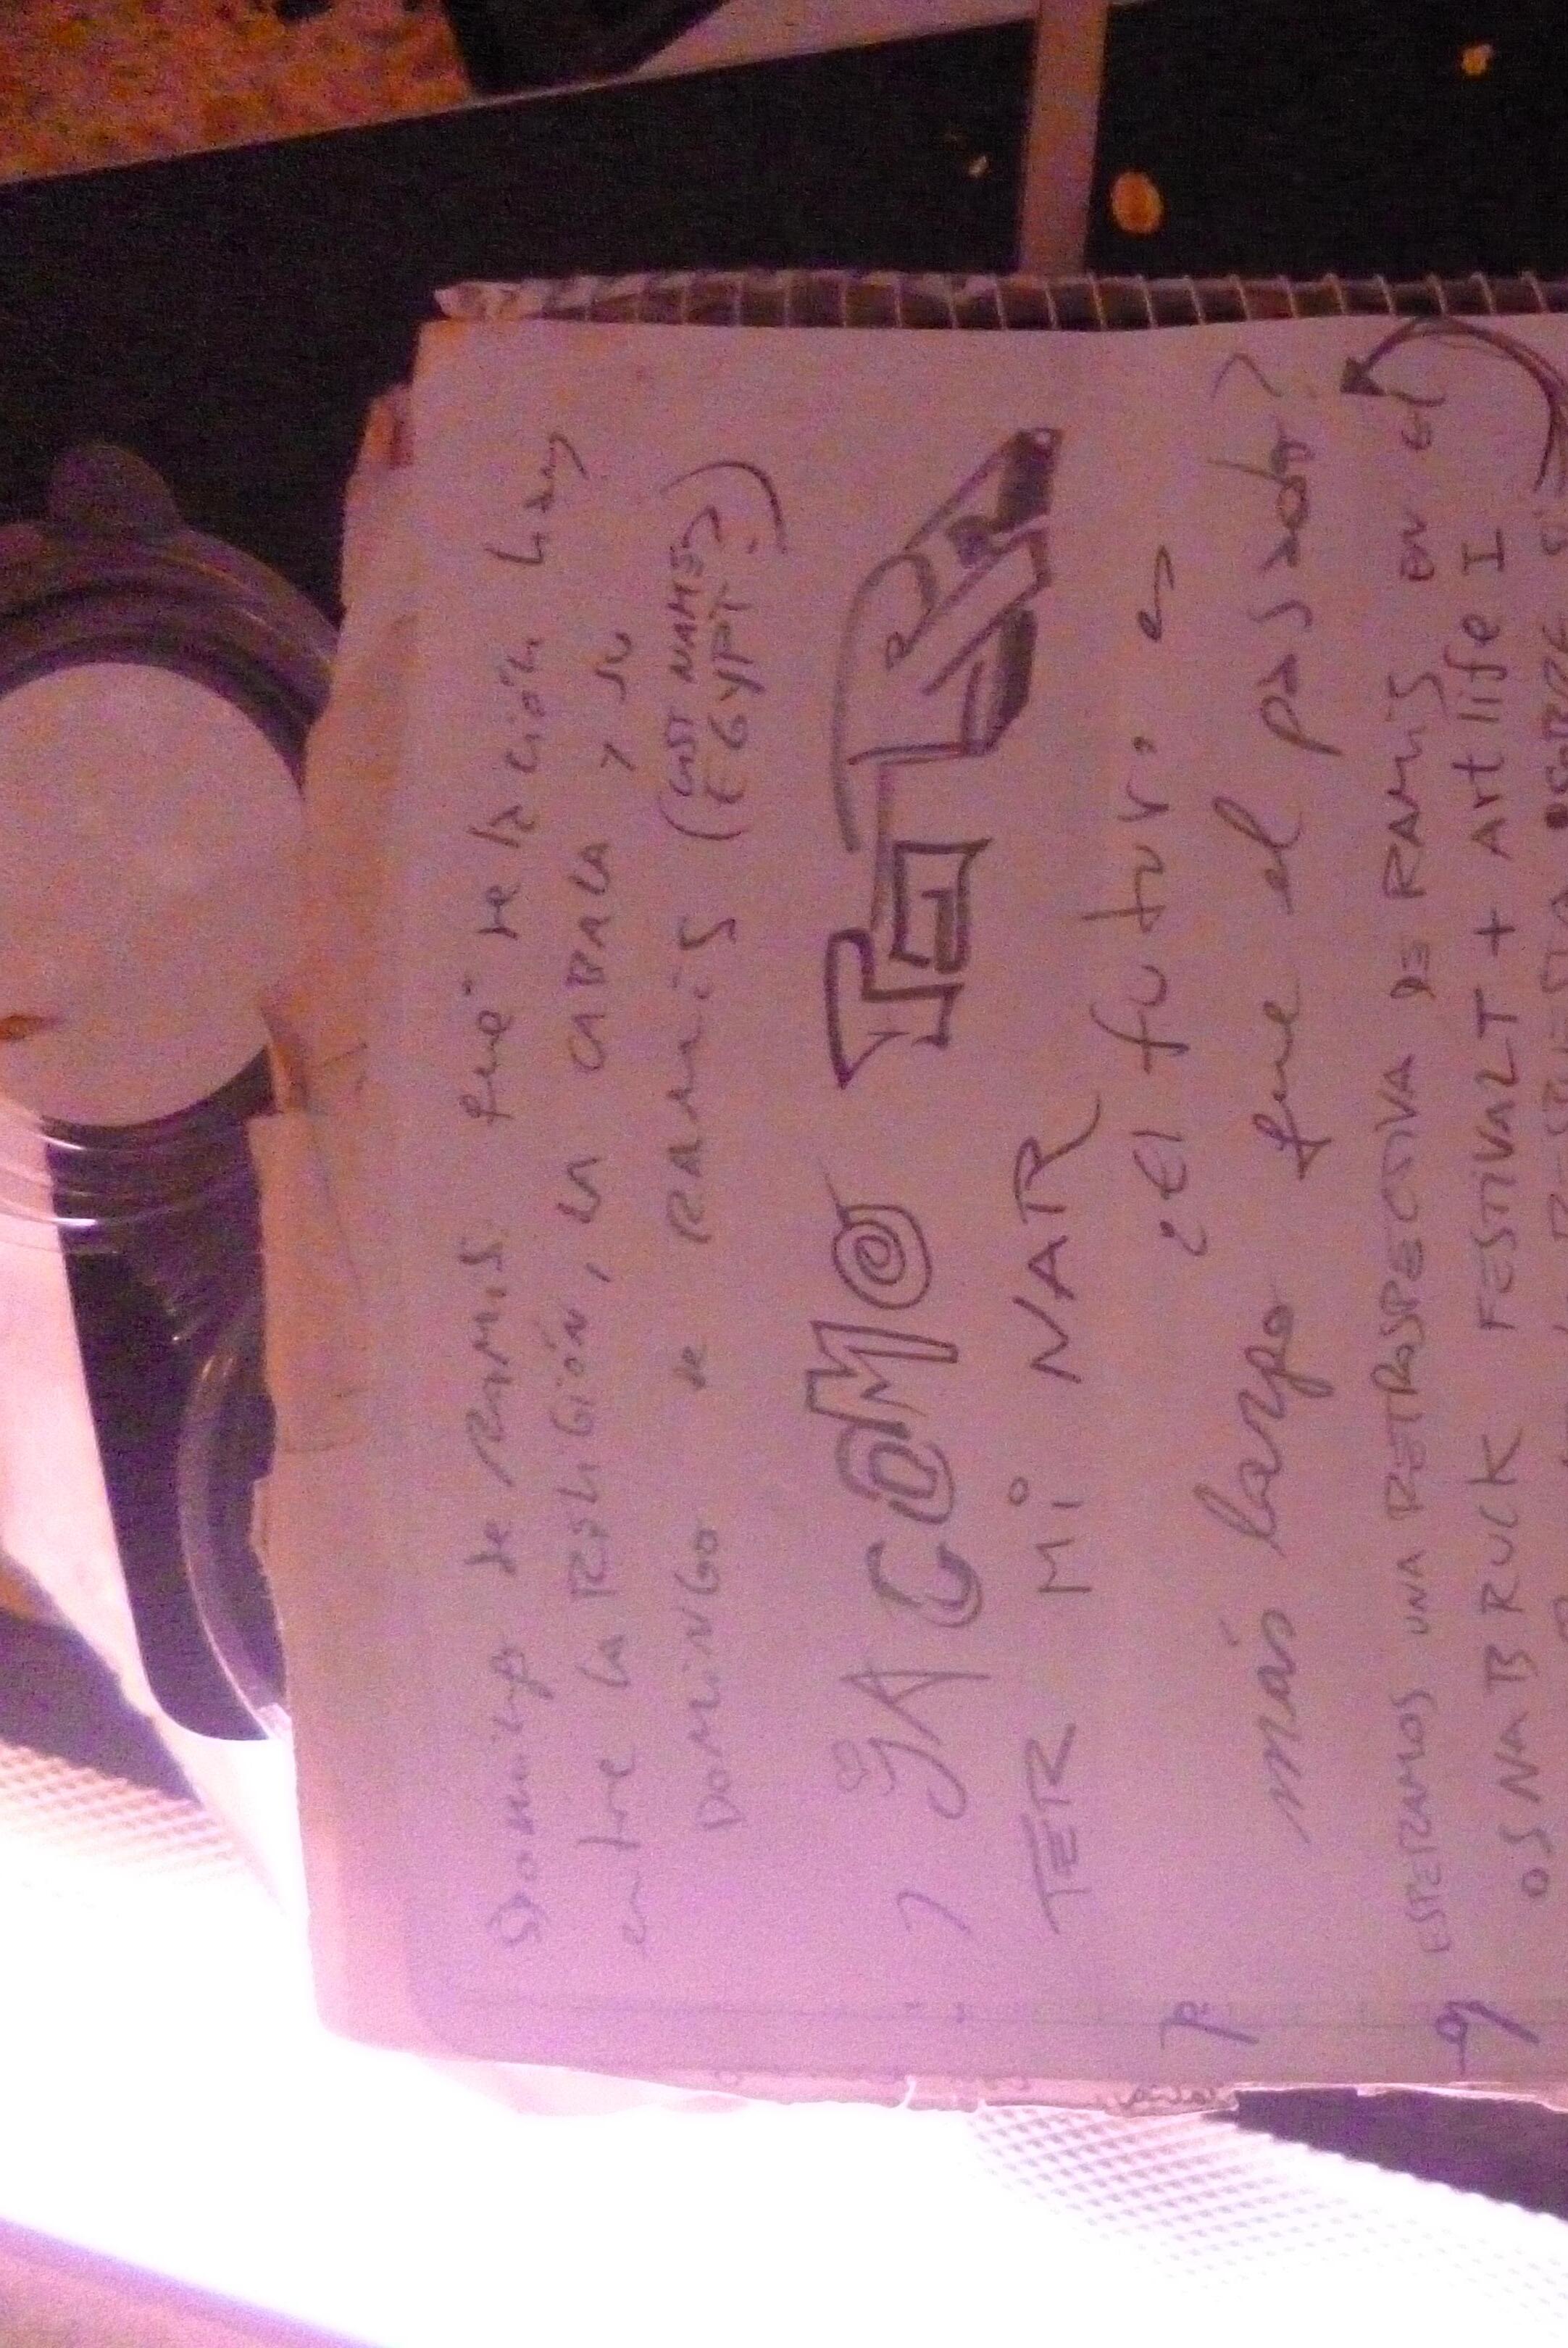 Domingo de RAMIS qué relación hay
entre la RELIGIÓN, la CABALA y su
DOMINGO de RAMIS (LAST NAMES?
EGYPT?)
? YA COMO
TER MI NAR
¿El futuro es
más largo que el pasado?
ESPERAMOS UNA RETROSPECTIVA DE RAMIS EN EL
OSNABRUCK FESTIVALT + Art life I